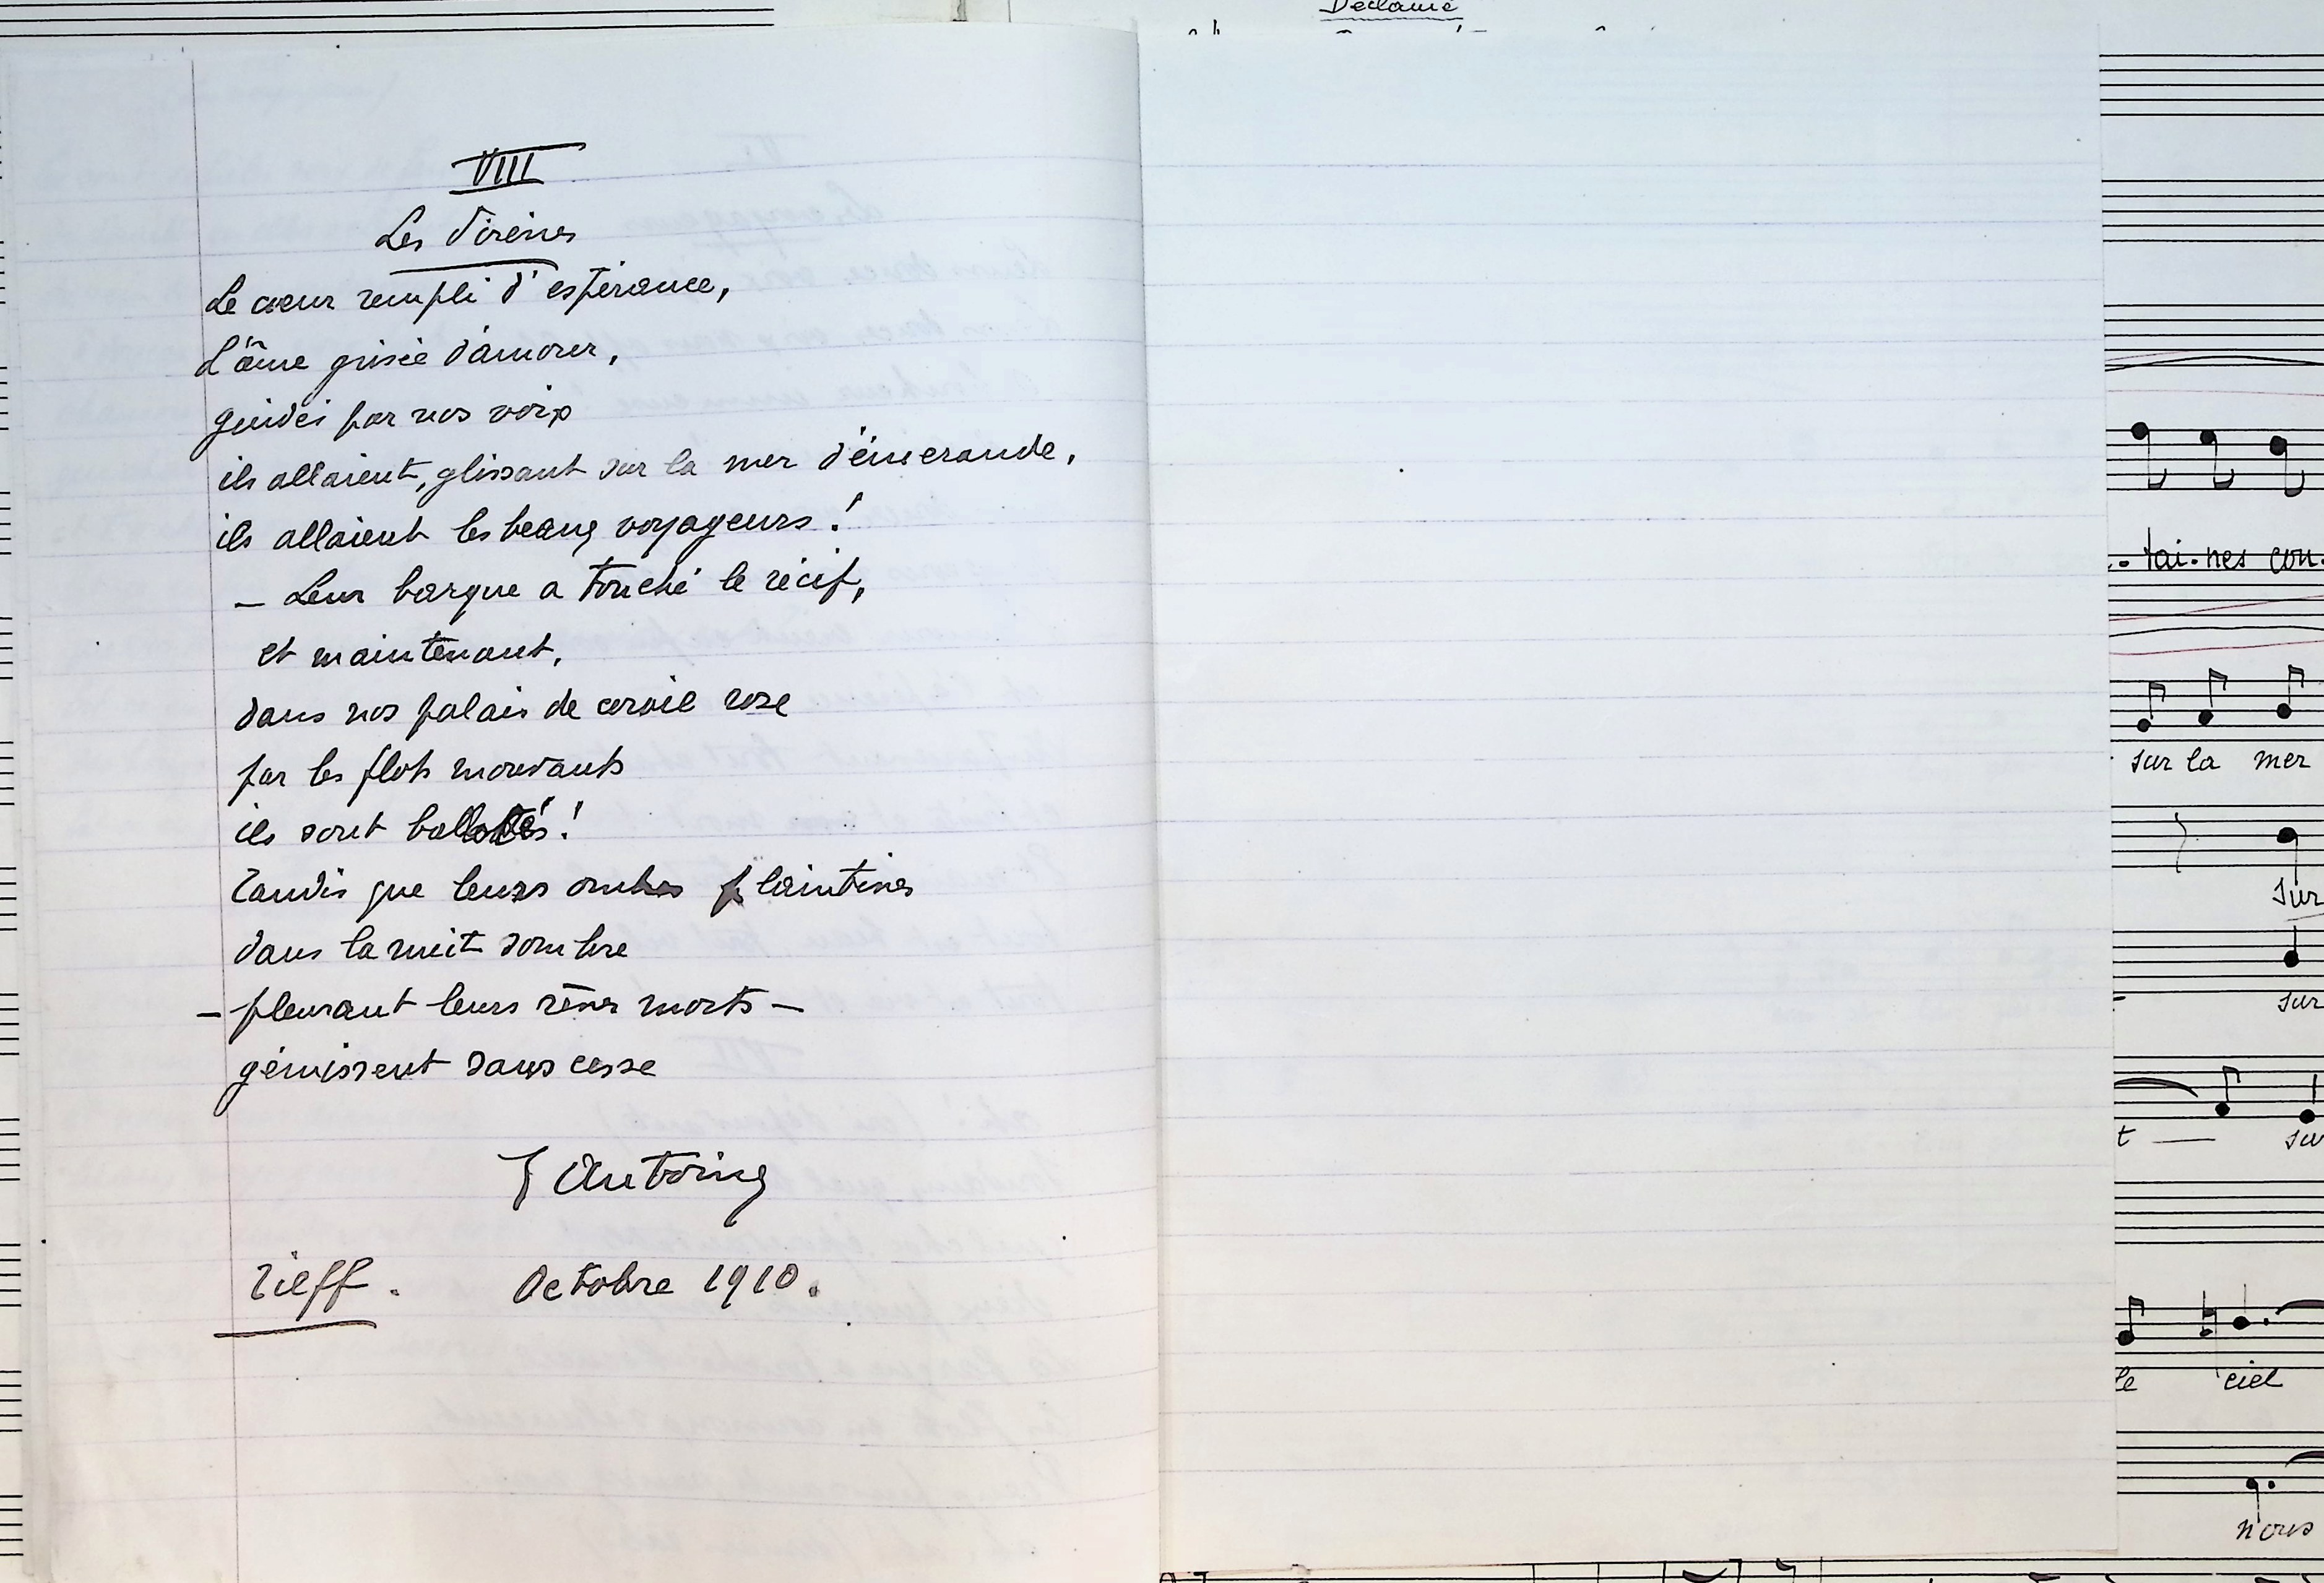 Déclamé
VIII
Les Sirènes
Le cœur rempli d'espérance,
L'âme grisée d'amour,
guidés par nos voix
ils allaient, glissant sur la mer d'émeraude,
ils allaient les beaux voyageurs !
– Leur barque a touché le récif,
et maintenant,
dans nos palais de corail rose
par les flots mouvants
ils sont ballottés !
Tandis que leurs ombres plaintives
dans la nuit sombre
– pleurant leurs rêves morts –
gémissent sans cesse
J Antoine
Kieff. Octobre 1910.
- tai - nes con -
sur la mer
sur
sur
t — su
le ciel
nous